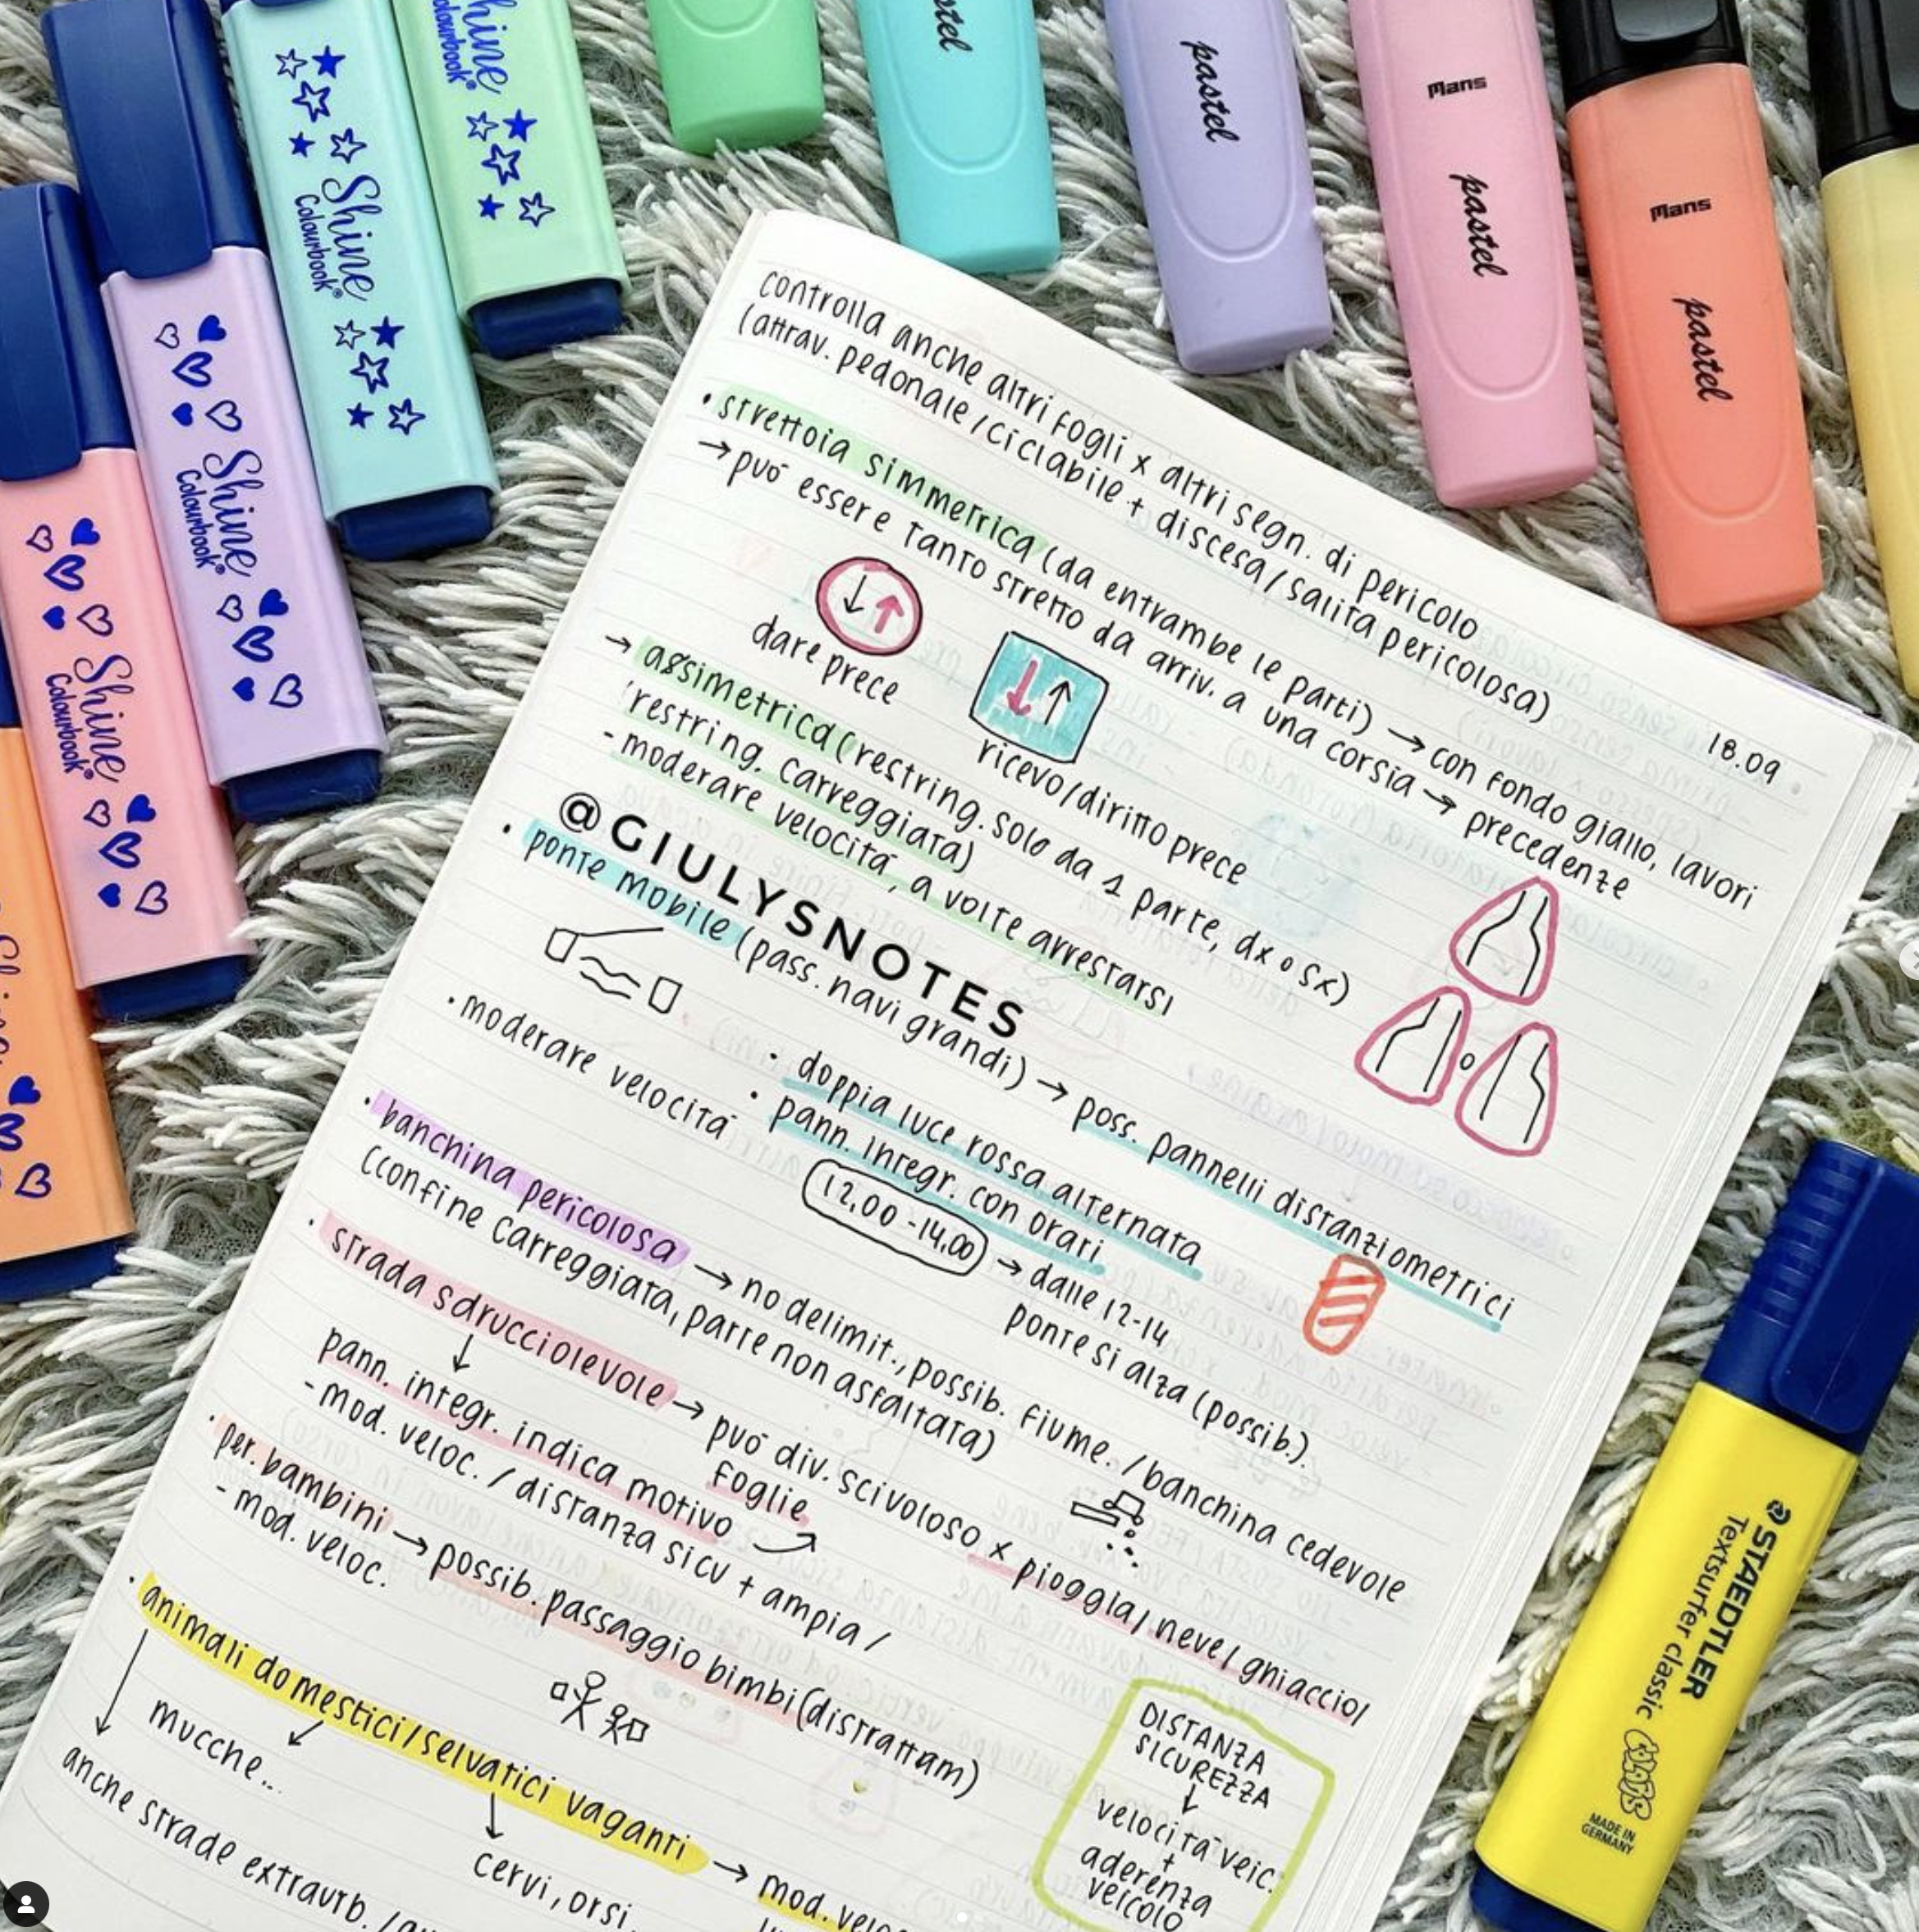 Shine
Colourbook®
Shine
Colourbook®
Shine
Colourbook®
Shine
Colourbook®
pastel
pastel
Mans
pastel
Mans
pastel
controlla anche altri fogli x altri segn. di pericolo
(attrav. pedonale/ciclabile + discesa/salita pericolosa)
18.09
• strettoia simmetrica (da entrambe le parti) → con fondo giallo, lavori
→ può essere tanto stretto da arriv. a una corsia → precedenze
dare prece
ricevo/diritto prece
→ assimetrica (restring. solo da 1 parte, dx o sx)
restring. carreggiata)
- moderare velocità, a volte arrestarsi
o
@GIULYSNOTES
• ponte mobile (pass. navi grandi) → poss. pannelli distanziometrici
• doppia luce rossa alternata
• moderare velocità
• pann. integr. con orari
12.00 - 14.00 → dalle 12-14
ponte si alza (possib.).
• banchina pericolosa → no delimit., possib. fiume. / banchina cedevole
(confine carreggiata, parte non asfaltata)
• strada sdrucciolevole → può div. scivoloso x pioggia/neve/ghiaccio/
foglie
pann. integr. indica motivo
- mod. veloc. / distanza sicu + ampia /
• per. bambini → possib. passaggio bimbi (distrattam)
- mod. veloc.
• animali domestici/selvatici vaganti → mod. veloc
mucche...
cervi, orsi.
anche strade extraurb. /
DISTANZA
SICUREZZA
↓
velocità veic.
+
aderenza
veicolo
STAEDTLER
Textsurfer classic
COLORS
MADE IN
GERMANY